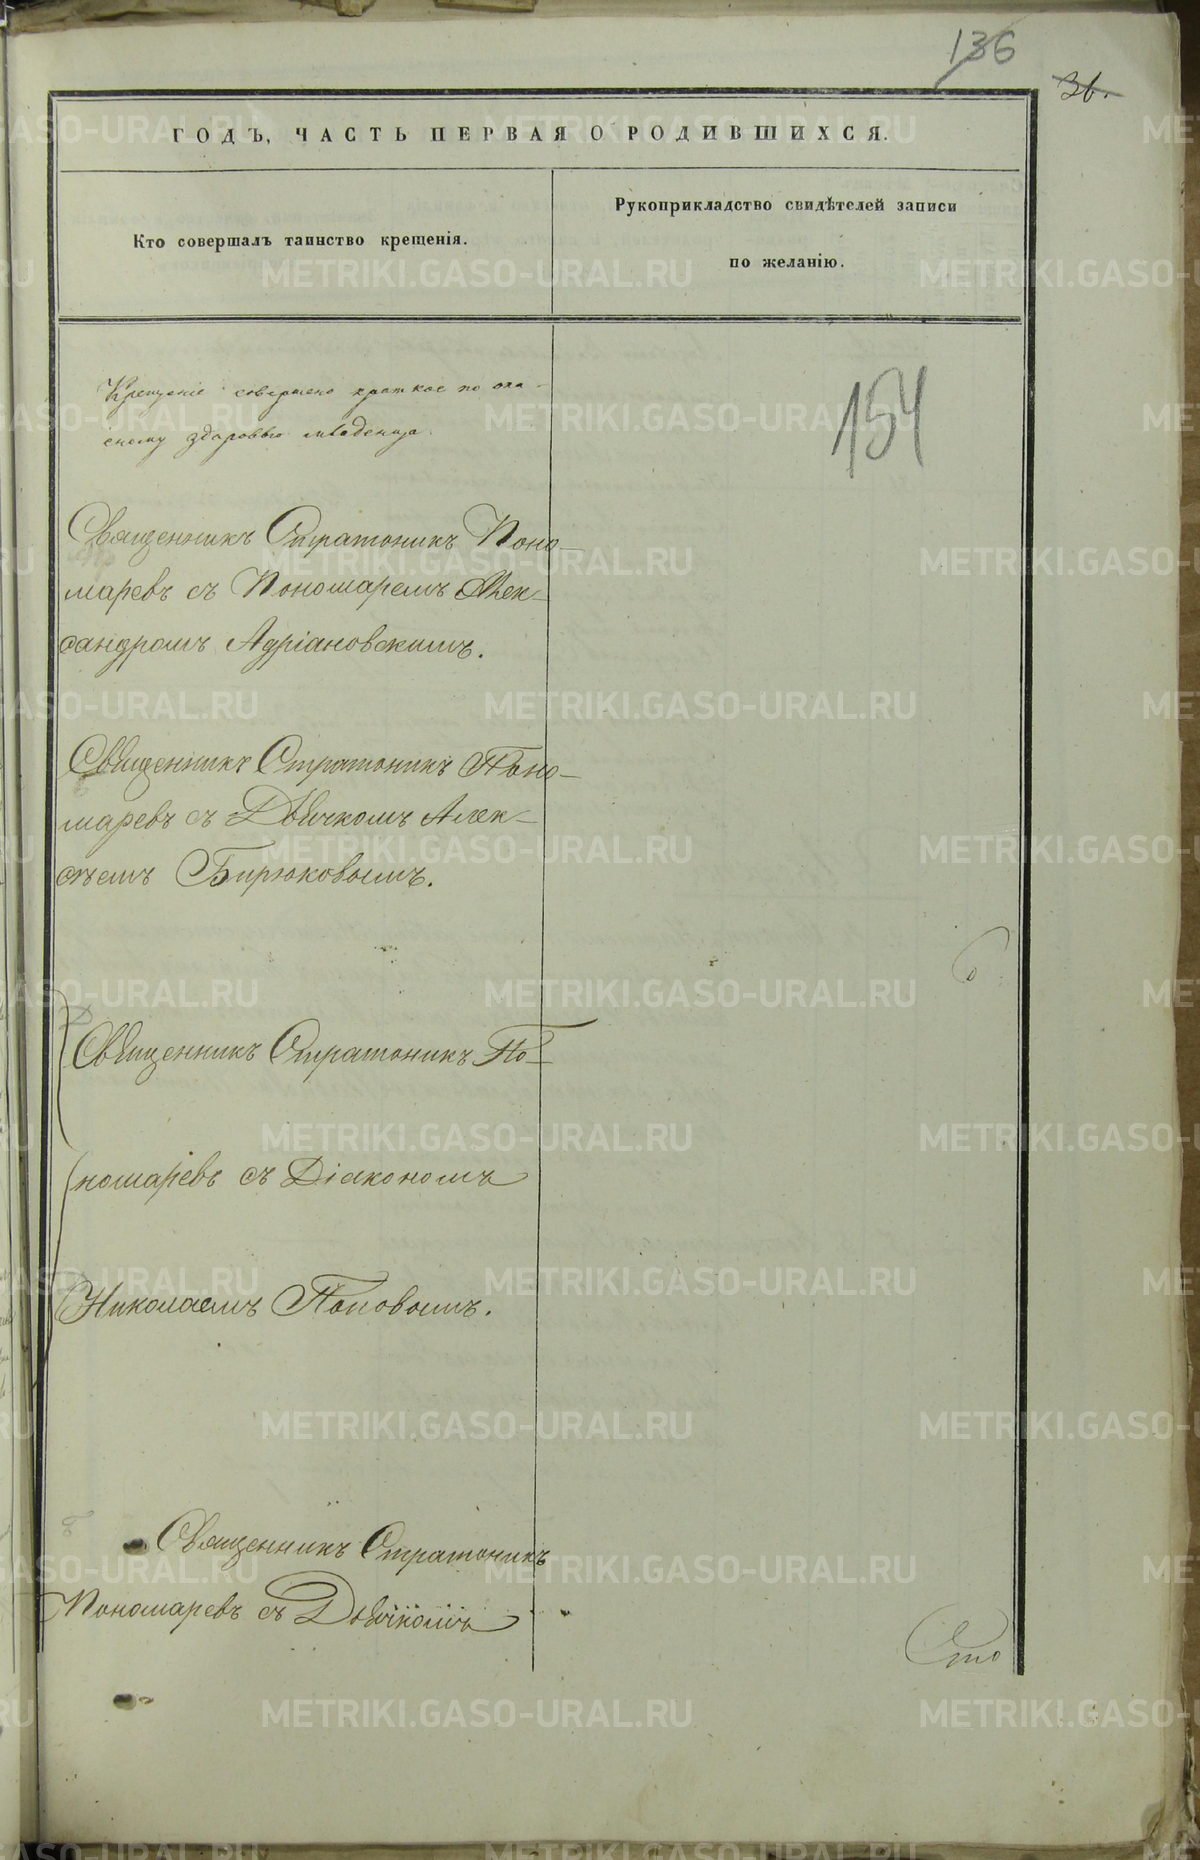 136
36.
ГОДЪ, ЧАСТЬ ПЕРВАЯ О РОДИВШИХСЯ.
Кто совершалъ таинство крещенія.
Рукоприкладство свидѣтелей записи
по желанію.
154
Крещеніе совершено краткое по опа-
сному здоровью младенца.
Священникъ Стратоникъ Поно-
маревъ съ Пономаремъ Алек-
сандромъ Адріановскимъ.
Священникъ Стратоникъ Поно-
маревъ съ Дьячкомъ Алек-
сѣемъ Бирюковымъ.
Священникъ Стратоникъ По-
номаревъ съ Діакономъ
Николаемъ Поповымъ.
Священникъ Стратоникъ
Пономаревъ съ Дьячкомъ
Сто
METRIKI.GASO-URAL.RU